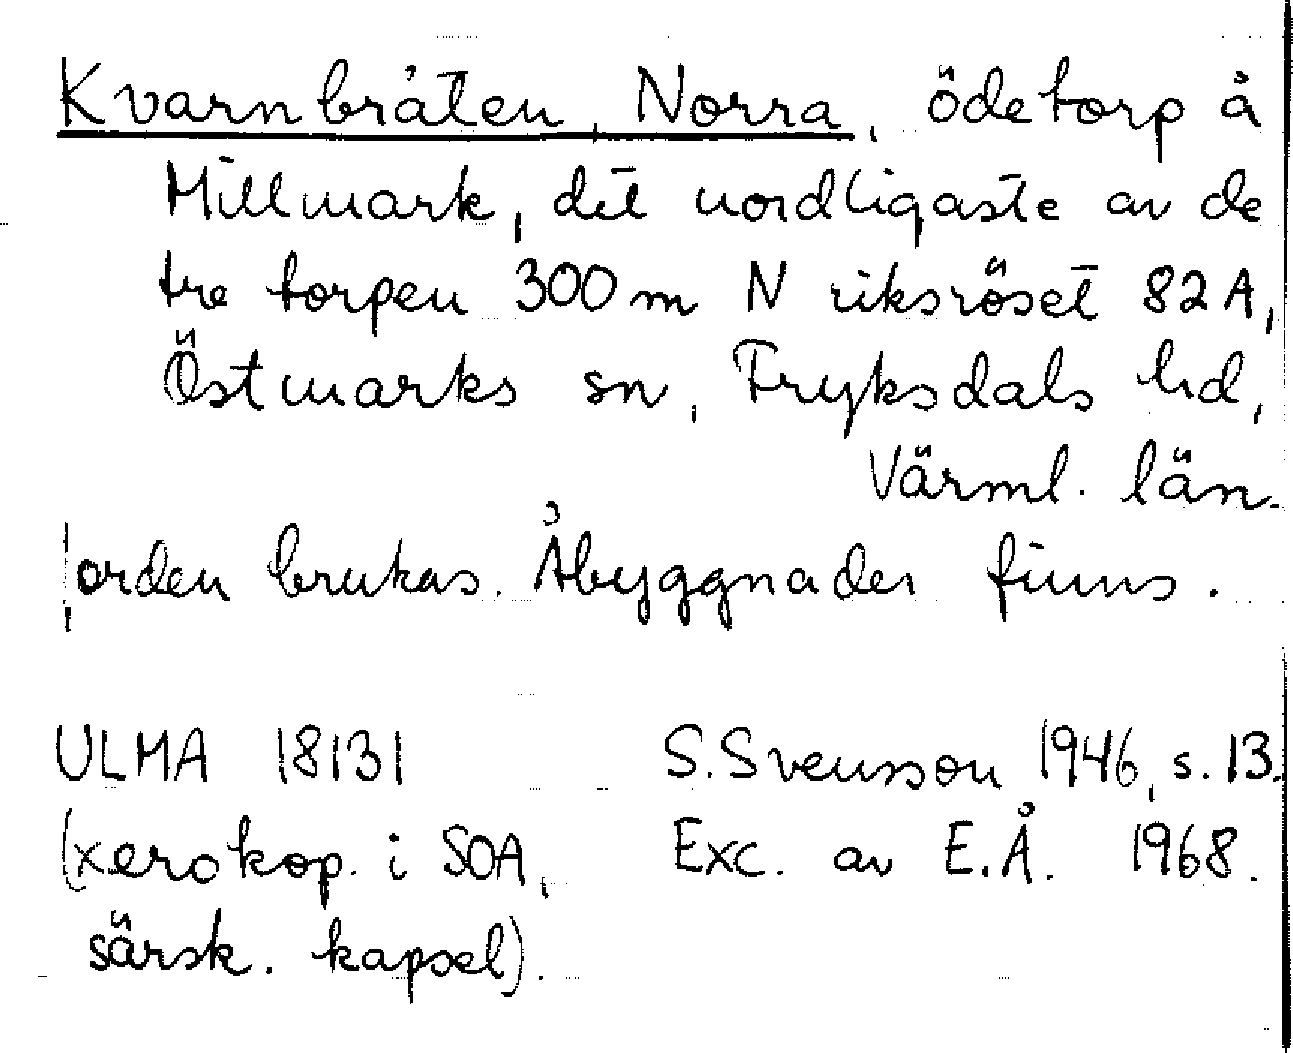 Kvarnbråten, Norra, ödetorp å
Millmark, det nordligaste av de
tre torpen 300 m N riksröset 82A,
Östmarks sn, Fryksdals hd,
Värml. län.
Jorden brukas. Åbyggnader finns.
ULMA 18131 S. Svensson 1946, s. 13.
(xerokop. i SOA, Exc. av E.Å. 1968.
särsk. kapsel).